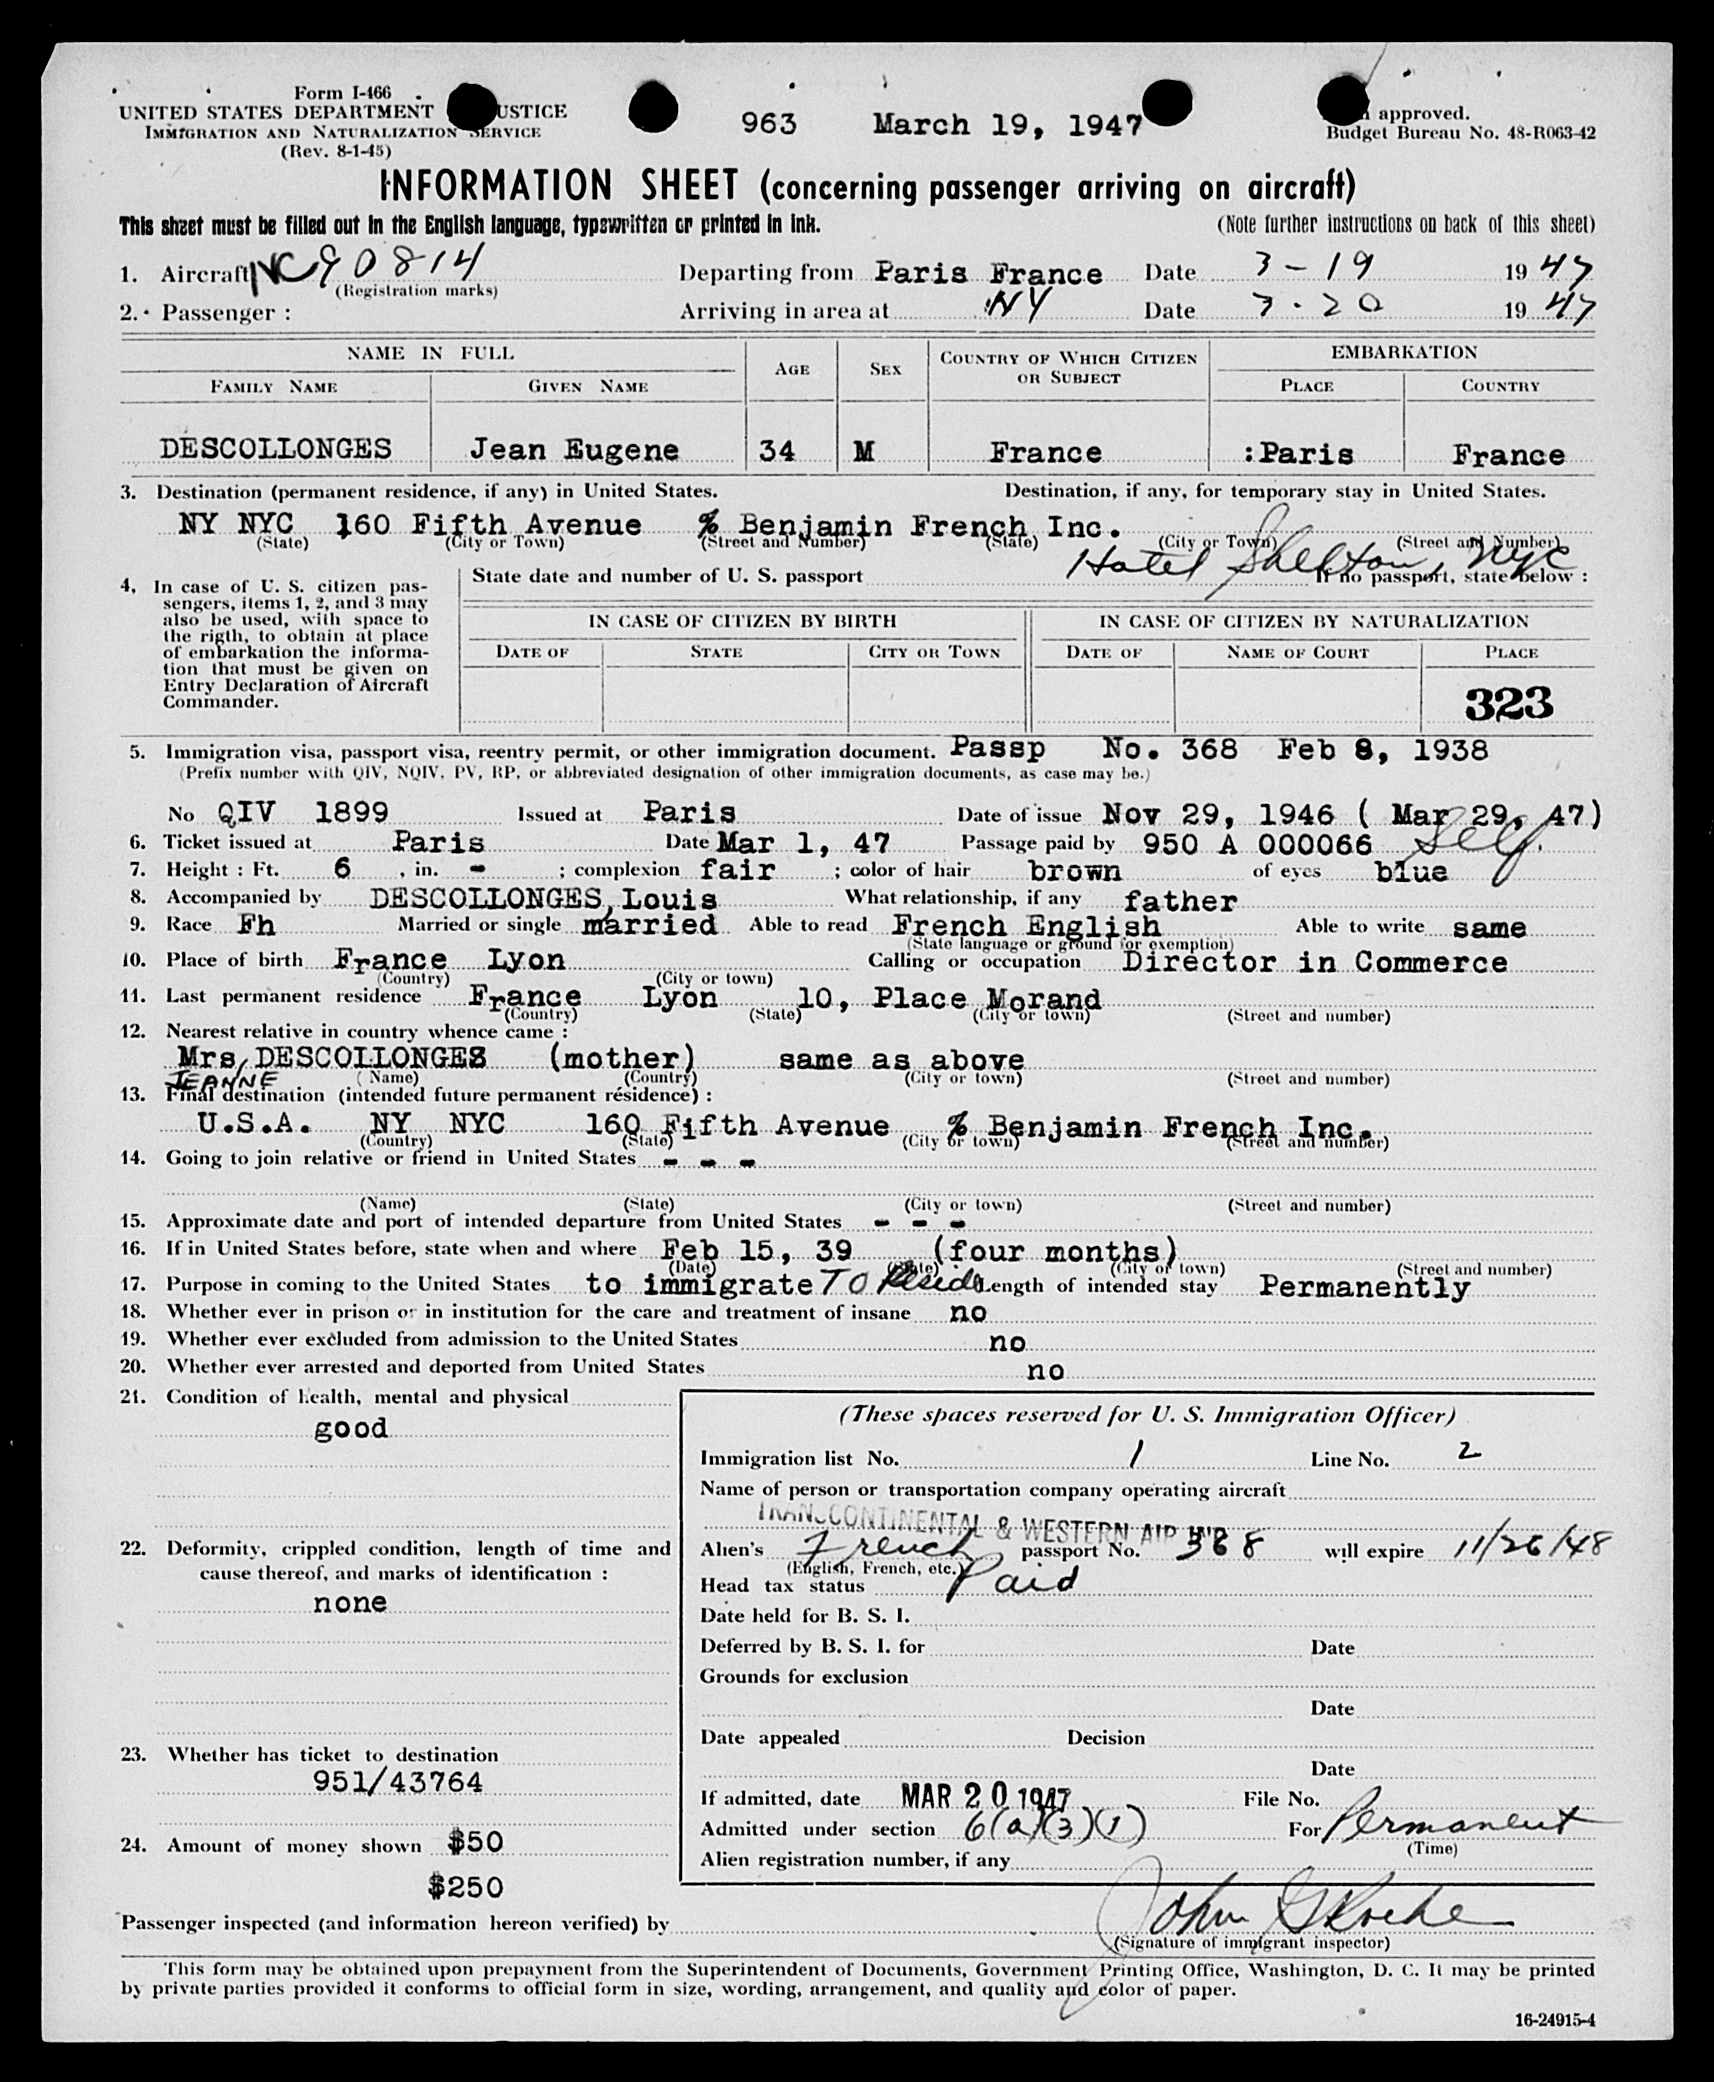 Form I-466
UNITED STATES DEPARTMENT USTICE
IMMIGRATION AND NATURALIZATION SERVICE
(Rev. 8-1-45)
963 March 19, 1947
approved.
Budget Bureau No. 48-R063-42
INFORMATION SHEET (concerning passenger arriving on aircraft)
This sheet must be filled out in the English language, typewritten or printed in ink. (Note further instructions on back of this sheet)
1. Aircraft NC 90814 Departing from Paris France Date 3-19 1947
(Registration marks)
2. Passenger : Arriving in area at NY Date 3-20 1947
NAME IN FULL AGE SEX COUNTRY OF WHICH CITIZEN OR SUBJECT EMBARKATION
FAMILY NAME GIVEN NAME PLACE COUNTRY
DESCOLLONGES Jean Eugene 34 M France :Paris France
3. Destination (permanent residence, if any) in United States. Destination, if any, for temporary stay in United States.
NY NYC 160 Fifth Avenue % Benjamin French Inc.
(State) (City or Town) (Street and Number) (State) (City or Town) (Street and Number)
Hotel Shelton, NYC
4. In case of U. S. citizen pas-
sengers, items 1, 2, and 3 may
also be used, with space to
the rigth, to obtain at place
of embarkation the informa-
tion that must be given on
Entry Declaration of Aircraft
Commander.
State date and number of U. S. passport If no passport, state below :
IN CASE OF CITIZEN BY BIRTH IN CASE OF CITIZEN BY NATURALIZATION
DATE OF STATE CITY OR TOWN DATE OF NAME OF COURT PLACE
323
5. Immigration visa, passport visa, reentry permit, or other immigration document. Passp No. 368 Feb 8, 1938
(Prefix number with QIV, NQIV, PV, RP, or abbreviated designation of other immigration documents, as case may be.)
No QIV 1899 Issued at Paris Date of issue Nov 29, 1946 ( Mar 29, 47)
6. Ticket issued at Paris Date Mar 1, 47 Passage paid by 950 A 000066 Self.
7. Height : Ft. 6 , in. - ; complexion fair ; color of hair brown of eyes blue
8. Accompanied by DESCOLLONGES, Louis What relationship, if any father
9. Race Fh Married or single married Able to read French English Able to write same
(State language or ground for exemption)
10. Place of birth France Lyon Calling or occupation Director in Commerce
(Country) (City or town)
11. Last permanent residence France Lyon 10, Place Morand
(Country) (State) (City or town) (Street and number)
12. Nearest relative in country whence came :
Mrs/ DESCOLLONGES (mother) same as above
JEANNE (Name) (Country) (City or town) (Street and number)
13. Final destination (intended future permanent residence) :
U.S.A. NY NYC 160 Fifth Avenue % Benjamin French Inc.
(Country) (State) (City or town) (Street and number)
14. Going to join relative or friend in United States - - -
(Name) (State) (City or town) (Street and number)
15. Approximate date and port of intended departure from United States - - -
16. If in United States before, state when and where Feb 15, 39 (four months)
(Date) (State) (City or town) (Street and number)
17. Purpose in coming to the United States to immigrate TO Reside Length of intended stay Permanently
18. Whether ever in prison or in institution for the care and treatment of insane no
19. Whether ever excluded from admission to the United States no
20. Whether ever arrested and deported from United States no
21. Condition of health, mental and physical
good
22. Deformity, crippled condition, length of time and
cause thereof, and marks of identification :
none
23. Whether has ticket to destination
951/43764
24. Amount of money shown $50
$250
(These spaces reserved for U. S. Immigration Officer)
Immigration list No. 1 Line No. 2
Name of person or transportation company operating aircraft
TRANSCONTINENTAL & WESTERN AIR INC
Alien's French passport No. 368 will expire 11/26/48
(English, French, etc.)
Head tax status Paid
Date held for B. S. I.
Deferred by B. S. I. for Date
Grounds for exclusion
Date
Date appealed Decision
Date
If admitted, date MAR 20 1947 File No.
Admitted under section 6(a)(3)(1) For Permanent
(Time)
Alien registration number, if any
Passenger inspected (and information hereon verified) by John G Roche
(Signature of immigrant inspector)
This form may be obtained upon prepayment from the Superintendent of Documents, Government Printing Office, Washington, D. C. It may be printed
by private parties provided it conforms to official form in size, wording, arrangement, and quality and color of paper.
16-24915-4